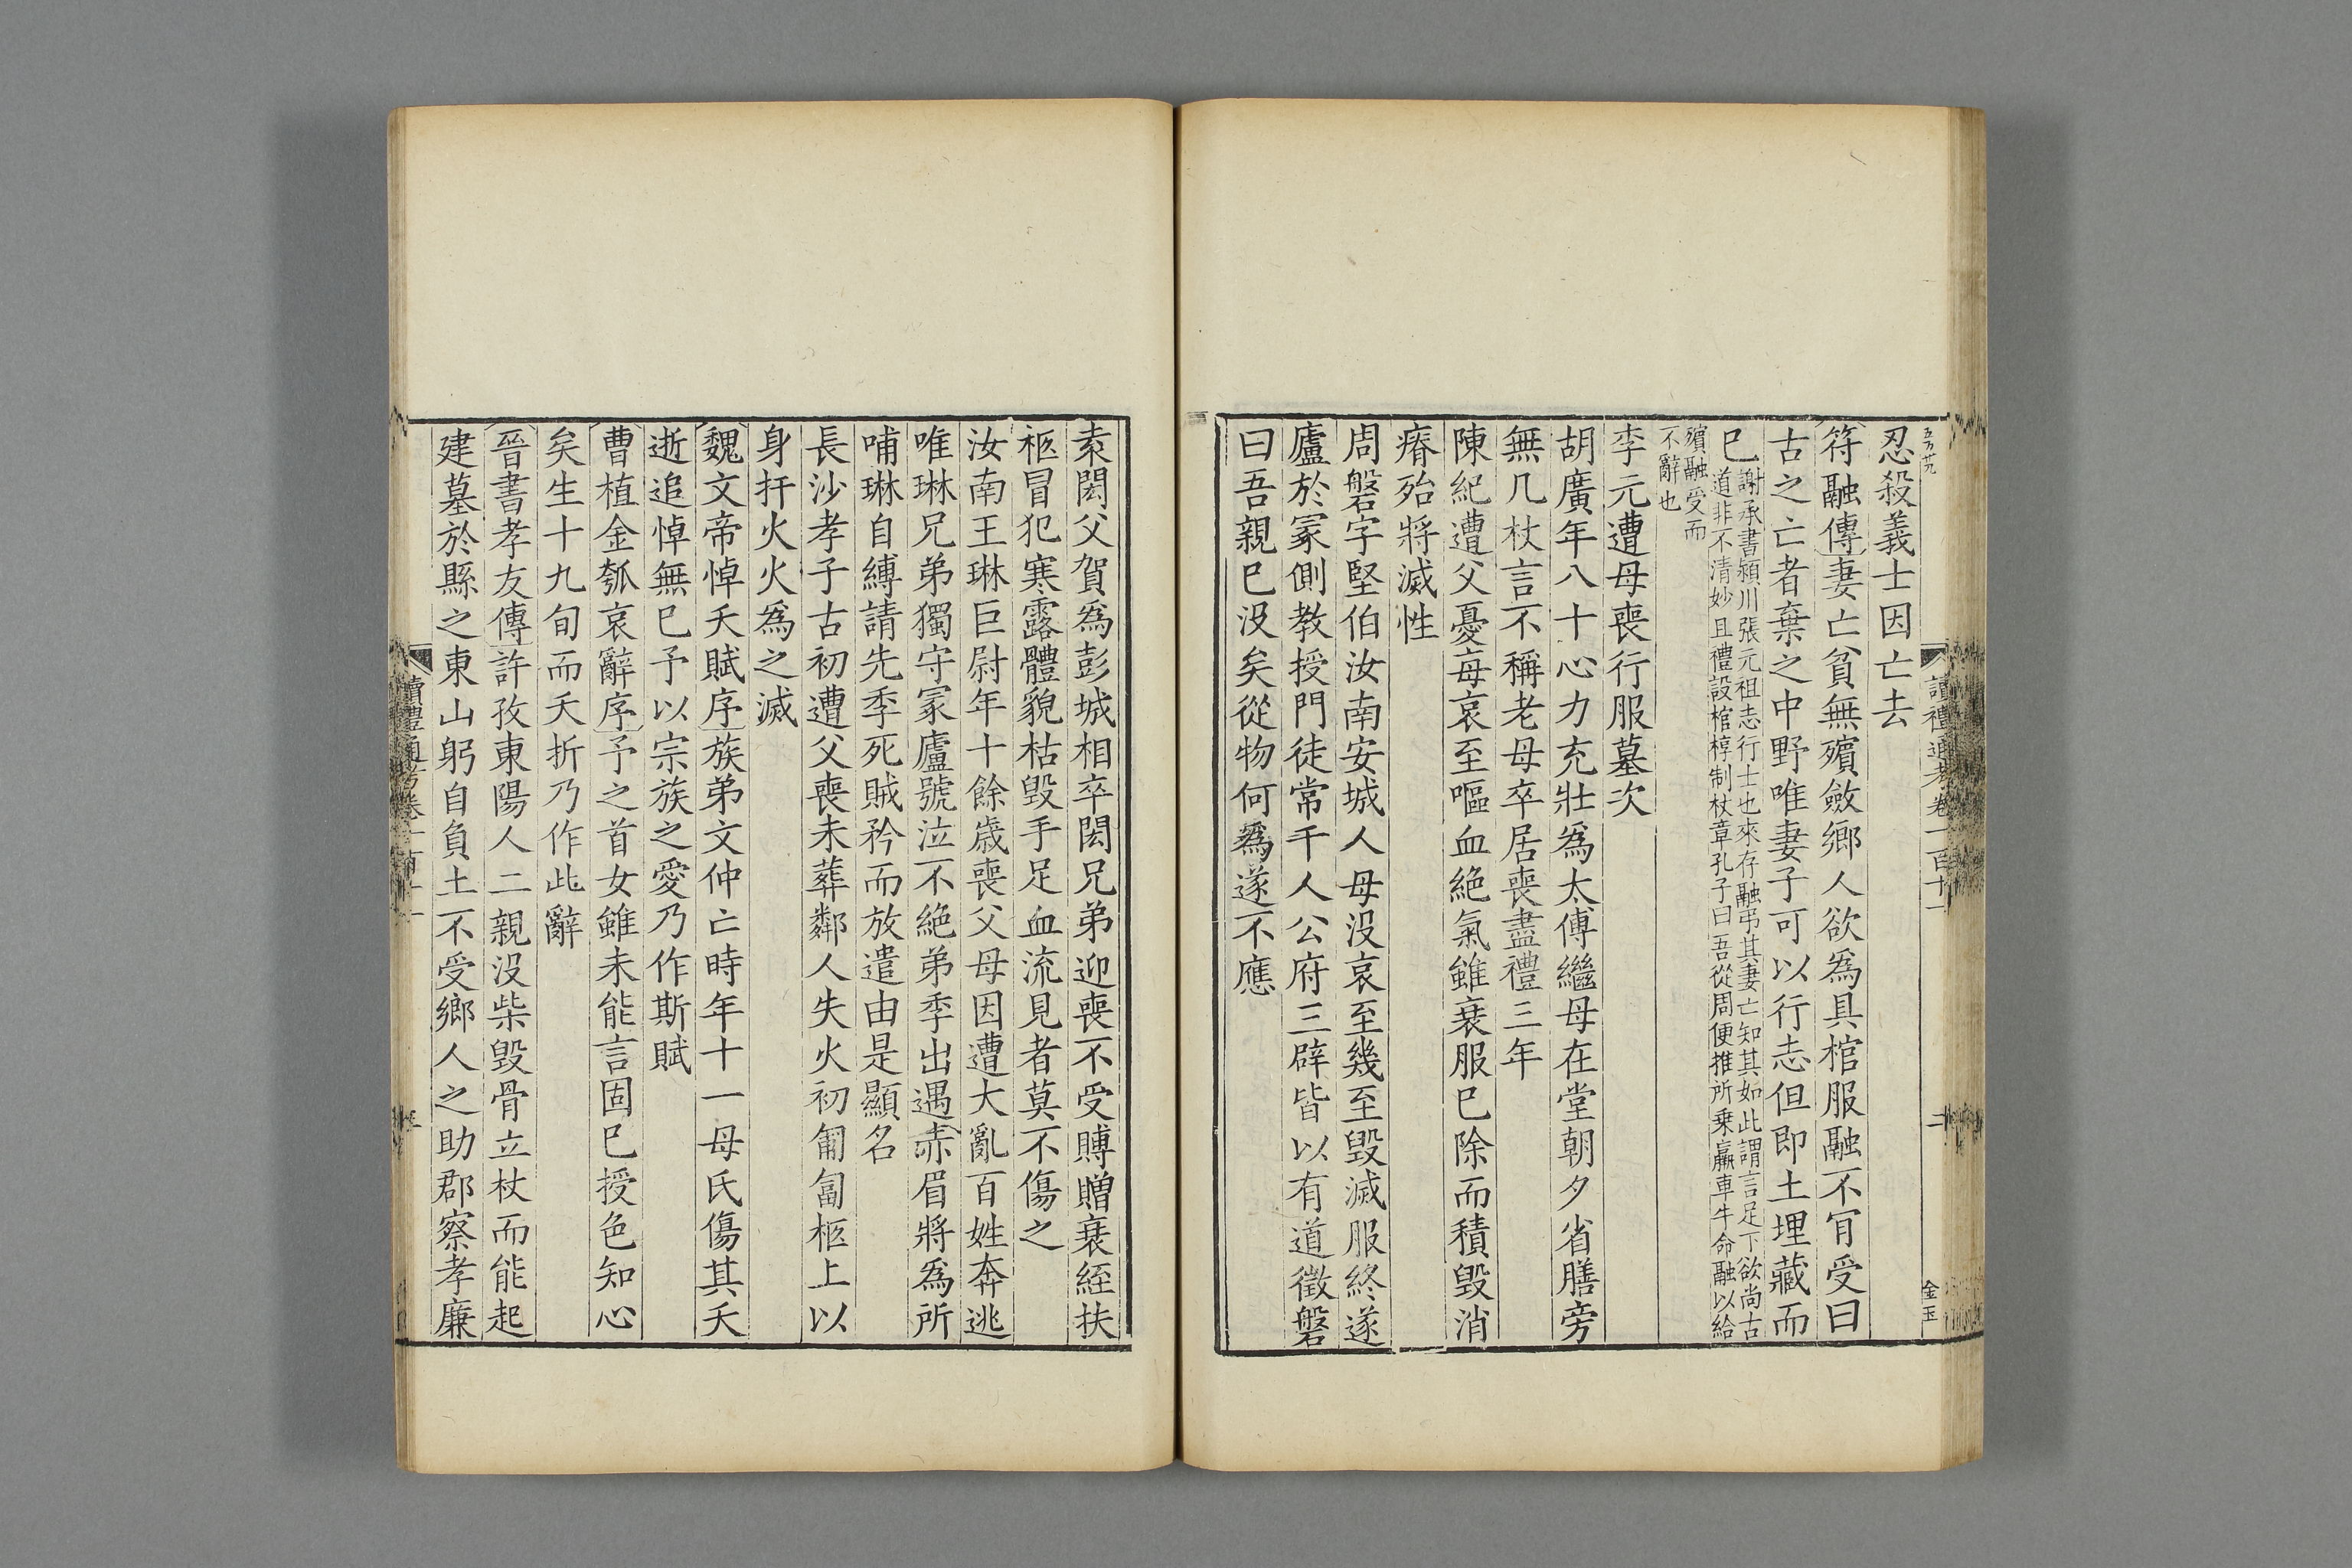 忍殺義士因亡去
符融傳妻亡貧無殯斂鄉人欲爲具棺服融不肎受曰
古之亡者棄之中野唯妻子可以行志但即土埋藏而
已謝承書潁川張元祖志行士也來存融弔其妻亡知其如此謂言足下欲尚古
道非不清妙且禮設棺椁制杖章孔子曰吾從周便推所乗羸車牛命融以給
殯融受而
不辭也
李元遭母喪行服墓次
胡廣年八十心力充壯爲太傅繼母在堂朝夕省膳旁
無几杖言不稱老母卒居喪盡禮三年
陳紀遭父憂每哀至嘔血絶氣雖衰服已除而積毀消
瘠殆將滅性
周磐字堅伯汝南安城人母没哀至幾至毀滅服終遂
廬於冡側教授門徒常千人公府三辟皆以有道徵磐
曰吾親已没矣從物何爲遂不應
讀禮通考卷一百十一
二
金玉
袁閎父賀爲彭城相卒閎兄弟迎喪不受賻贈衰絰扶
柩冒犯寒露體貌枯毀手足血流見者莫不傷之
汝南王琳巨尉年十餘歳喪父母因遭大亂百姓奔逃
唯琳兄弟獨守冡廬號泣不絶弟季出遇赤眉將爲所
哺琳自縛請先季死賊矜而放遣由是顯名
長沙孝子古初遭父喪未葬鄰人失火初匍匐柩上以
身扞火火爲之滅
魏文帝悼夭賦序族弟文仲亡時年十一母氏傷其夭
逝追悼無已予以宗族之愛乃作斯賦
曹植金瓠哀辭序予之首女雖未能言固已授色知心
矣生十九旬而夭折乃作此辭
晉書孝友傳許孜東陽人二親没柴毀骨立杖而能起
建墓於縣之東山躬自負土不受鄉人之助郡察孝廉
讀禮通考卷一百十一